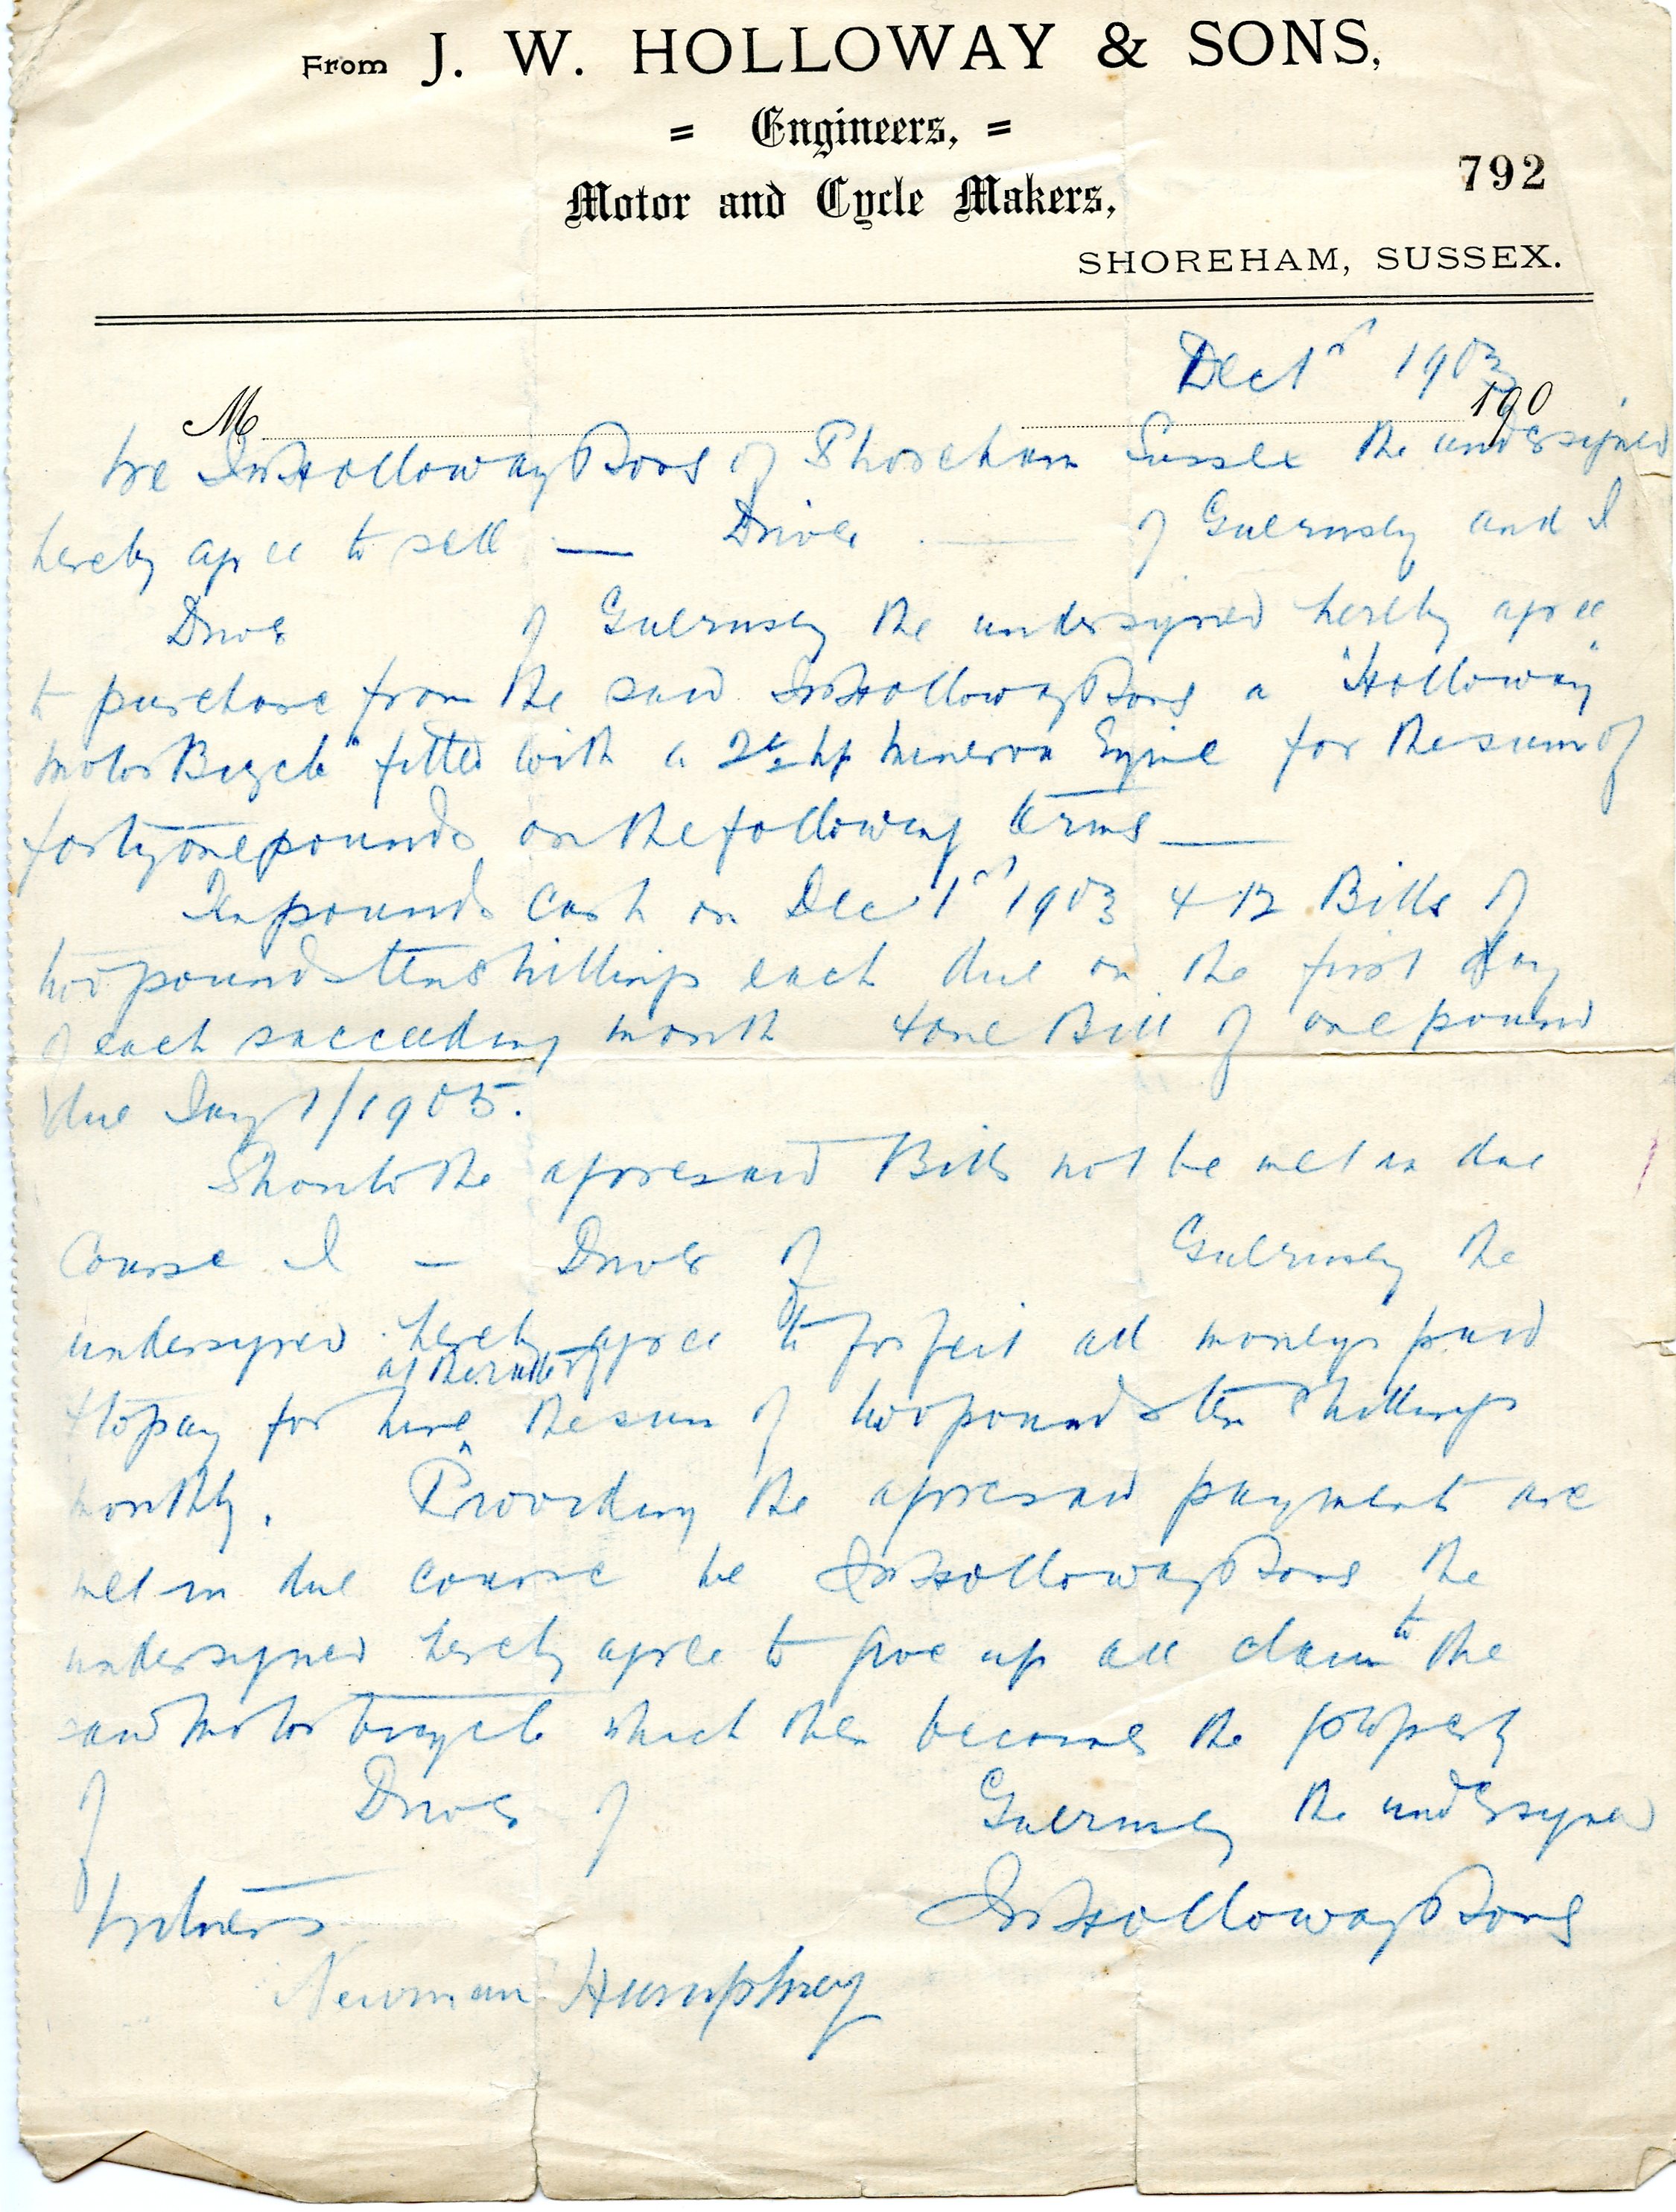 From J. W. HOLLOWAY & SONS,
= Engineers, =
Motor and Cycle Makers,
792
SHOREHAM, SUSSEX.
Dec 1st 1903
M 190
We JW Holloway & Sons of Shoreham Sussex the undersigned
hereby agree to sell — Driver of Guernsey and I
Driver of Guernsey the undersigned hereby agree
to purchase from the said JW Holloway & Sons a "Holloway"
Motor Bicycle" fitted with a 2 hp Minerva Engine for the sum of
forty one pounds on the following terms —
Ten pounds cash on Dec 1st 1903 & 12 Bills of
two pounds ten shillings each due on the first day
of each succeeding month & one Bill of one pound
due Jany 1/1905.
Should the aforesaid Bills not be met in due
Course I — Driver of Guernsey the
undersigned hereby agree to forfeit all moneys paid
at the rate of
& to pay for hire the sum of two pounds ten shillings
monthly. Providing the aforesaid payments are
met in due course we JW Holloway & Sons the
undersigned hereby agree to give up all claim to the
said Motor bicycle which then becomes the property
of Driver of Guernsey the undersigned
Witness
JW Holloway & Sons
Newman Humphrey